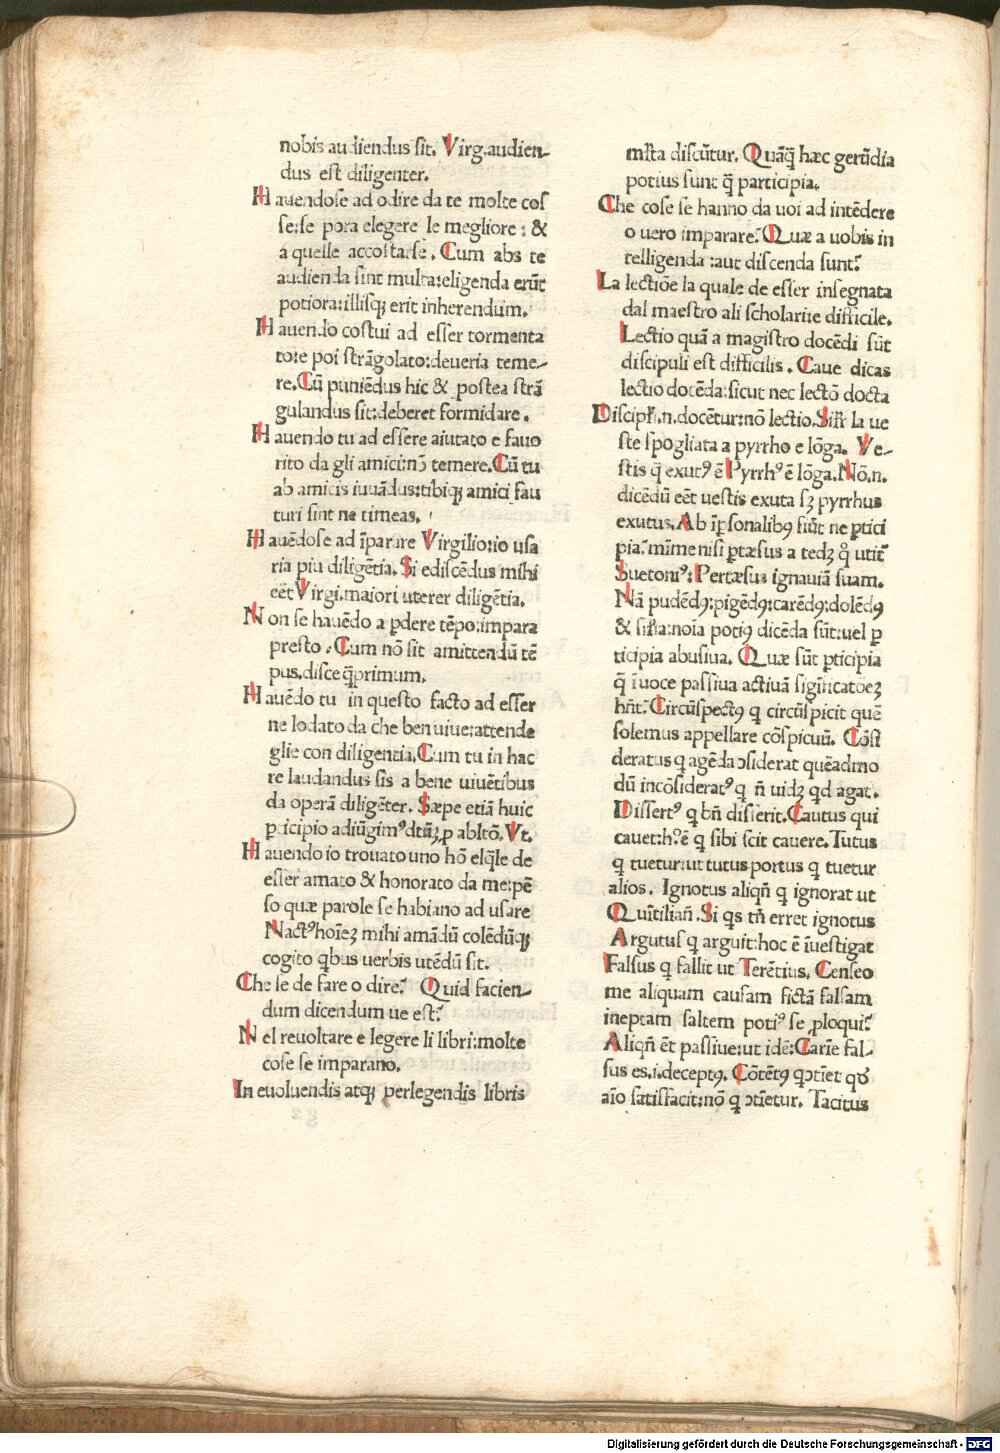 nobis audiendus sit. Virg.audien-
dus est diligenter.
Hauendose ad odire da te molte cos
se:se pora elegere le megliore : &
a quelle accostarse . Cum abs te
audienda sint multa:eligenda erũt
potiora:illisqꝫ erit inherendum.
Hauendo costui ad esser tormenta
to:e poi strãgolato:deueria teme-
re.Cũ puniẽdus hic & postea strã
gulandus sit:deberet formidare.
Hauendo tu ad essere aiutato e fauo
rito da gli amici:nõ temere.Cũ tu
ab amicis iuuãdus:tibiqꝫ amici fau
turi sint ne timeas.
Hauẽdose ad ĩparare Virgilio:io usa
ria piu diligẽtia. Si ediscẽdus mihi
eẽt Virgi.maiori uterer diligẽtia.
Non se hauẽdo a ꝑdere tẽpo:impara
presto . Cum nõ sit amittendũ tẽ
pus.disce q̃primum.
Hauẽdo tu in questo facto ad esser
ne lodato da che ben uiue:attende
glie con diligentia.Cum tu in hac
re laudandus sis a bene uiuẽtibus
da operã diligẽter. Sæpe etiã huic
ꝑticipio adiũgimꝰ dtũꝫ ꝓ abltõ.Vt.
Hauendo io trouato uno hõ elq̃le de
esser amato & honorato da me:pẽ
so quæ parole se habiano ad usare
Nactꝰ hoĩeꝫ mihi amãdũ colẽdũqꝫ
cogito qbus uerbis utẽdũ sit.
Che se de fare o dire? Quid facien-
dum dicendum ue est?
Nel reuoltare e legere li libri:molte
cose se imparano.
In euoluendis atqꝫ perlegendis libris
mĩta discũtur. Quãq̃ hæc gerũdia
potius sunt q̃ participia.
Che cose se hanno da uoi ad intẽdere
o uero imparare? Quæ a uobis in
telligenda :aut discenda sunt?
La lectiõe la quale de esser insegnata
dal maestro ali scholari:e difficile.
Lectio quã a magistro docẽdi sũt
discipuli est difficilis . Caue dicas
lectio docẽda:sicut nec lectõ docta
Discipłi.n.docẽtur:nõ lectio.Siłr la ue
ste spogliata a pyrrho e lõga. Ve-
stis q̃ exutꝰ ẽ Pyrrhꝰ ẽ lõga.Nõ.n.
dicẽdũ eẽt uestis exuta sꝫ pyrrhus
exutus.Ab ĩꝑsonalibꝰ fiũt ne ꝑtici
pia? mĩme nisi ꝑtæsus a tedꝫ q̊ utit᷑
Suetoniꝰ: Pertæsus ignauiã suam.
Nã pudẽdꝰ:pigẽdꝰ:carẽdꝰ:dolẽdꝰ
& siłia:noĩa potiꝰ dicẽda sũt:uel ꝑ
ticipia abusiua. Quæ sũt ꝑticipia
q̃ ĩ uoce passiua actiuã significatõeꝫ
hñt? Circũspectꝰ q circũspicit quẽ
solemus appellare cõspicuũ. Cõsi
deratus q agẽda ↄsiderat quẽadmo
dũ incõsideratꝰ q ñ uidꝫ qd agat.
Dissertꝰ q bñ disserit.Cautus qui
cauet:hꝰ ẽ q sibi scit cauere. Tutus
q tuetur:ut tutus portus q tuetur
alios. Ignotus aliqñ q ignorat ut
Quĩtiliañ.Si qs tñ erret ignotus
Argutus q arguit:hoc ẽ ĩuestigat
Falsus q fallit ut Terẽtius. Censeo
me aliquam causam fictã falsam
ineptam saltem potiꝰ se ꝓloqui?
Aliqñ ẽt passiue:ut idẽ:Carĩe fal-
sus es.i.deceptꝰ. Cõtẽtꝰ qↄtĩet qđ
aĩo satisfacit:nõ q ↄtĩetur. Tacitus
Digitalisierung gefördert durch die Deutsche Forschungsgemeinschaft - DFG